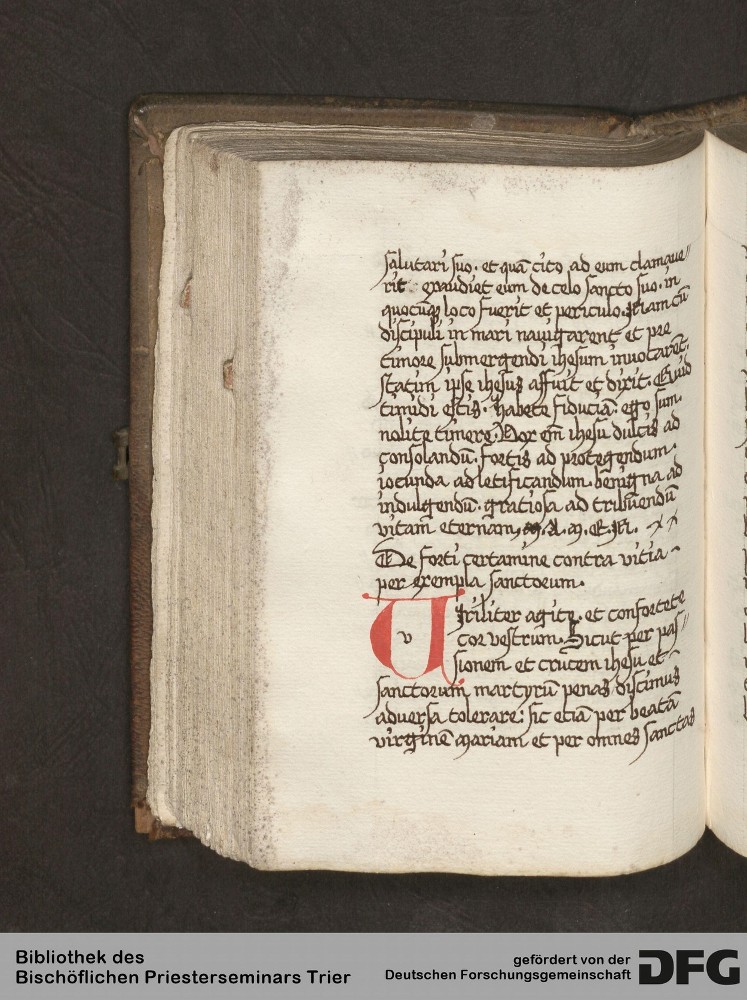 salutari suo. et quā cito ad eum clamaue//
rit exaudiet eum de celo sancto suo. in
quocūqȝ loco fuerit et periculo. Nam cū
discipuli in mari nauigarent et pre
timore submergendi ihesum inuocarēt.
statim ipse ihesus affuit et dixit. Quid
timidi estis. habete fiduciā. ego sum.
nolite timere. Vox em̄ ihesu dulcis ad
consolandū. fortis ad protegendum.
iocunda ad letificandum. benigna ad
indulgendū. gratiosa ad tribuendū
vitam eternam, A. M. E. N.
De forti certamine contra vitia
per exempla sanctorum.
Uiriliter agite. et confortete
v cor vestrum. Sicut per pas//
sionem et crucem ihesu et
sanctorum martyrū penas discimus
aduersa tolerare: sic etiā per beatā
virginē mariam et per omnes sanctas
Bibliothek des
Bischöflichen Priesterseminars Trier
gefördert von der
Deutschen Forschungsgemeinschaft
DFG